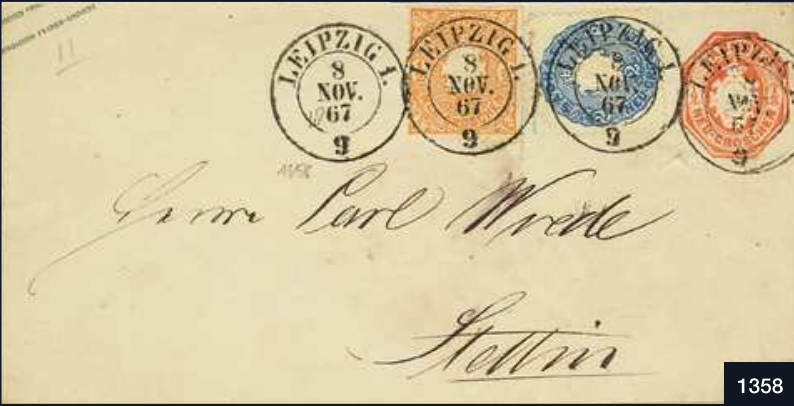 LEIPZIG 1.
8
NOV.
67
9
LEIPZIG 1.
8
NOV.
67
9
LEIPZIG 1.
8
NOV.
67
9
LEIPZIG 1.
NEU-GROSCHEN
9
11
1358
Herrn Carl Wrede
Stettin
1358